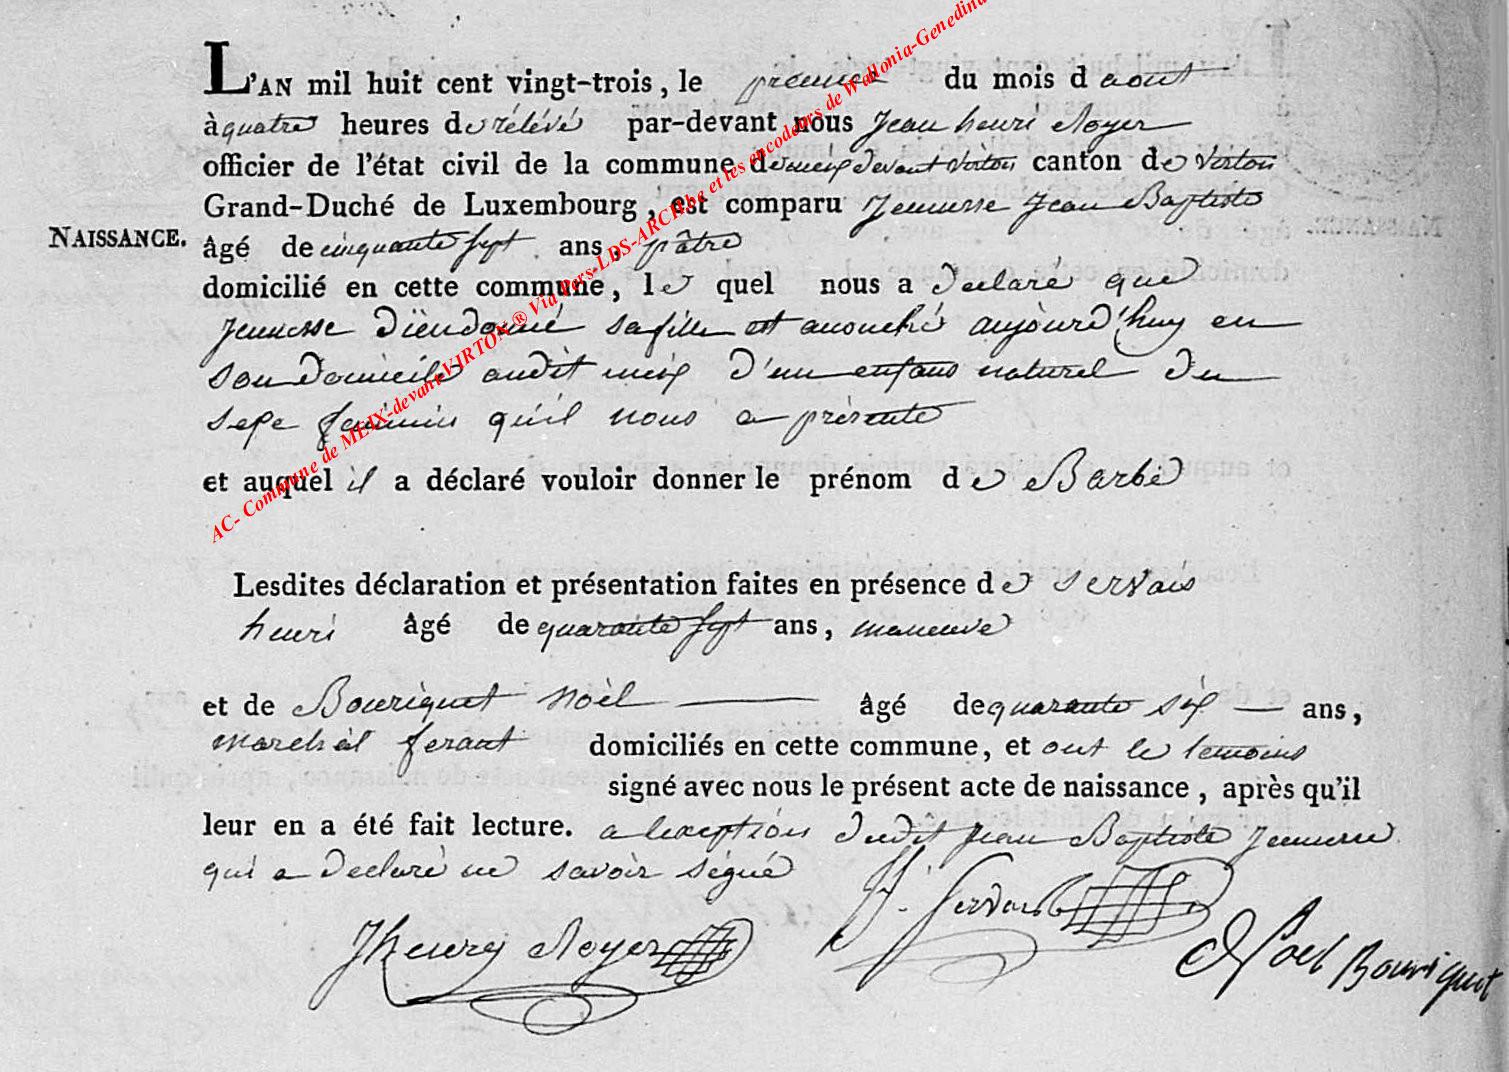 L'AN mil huit cent vingt-trois, le premier du mois d aout
à quatre heures de rélévé par-devant nous Jean henri Noyer
officier de l'état civil de la commune de meix devant virton canton de virton
Grand-Duché de Luxembourg, est comparu Jeunesse Jean Baptiste
NAISSANCE.
âgé de cinquante sept ans, pâtre
domicilié en cette commune, le quel nous a declaré que
Jeunesse Diëudonné sa fille est acouché aujourd'huy en
son domicile audit meix d'un enfans naturel du
sexe féminin qu'il nous a présenté
et auquel il a déclaré vouloir donner le prénom de Barbe
Lesdites déclaration et présentation faites en présence de Servais
henri âgé de quarante sept ans, maneuve
et de Bouriquet Noël âgé de quarante six ans,
marchal ferant domiciliés en cette commune, et ont le temoins
signé avec nous le présent acte de naissance, après qu'il
leur en a été fait lecture. a lexception dudit Jean Baptiste Jeunesse
qui a declaré ne savoir signé
Jhenry Noyer
H. Servais
Noel Bouriquet
AC- Commune de MEIX-devant-VIRTON ® Via Pers-LDS-ARCH.be et les encodeurs de Wallonia-Genedina